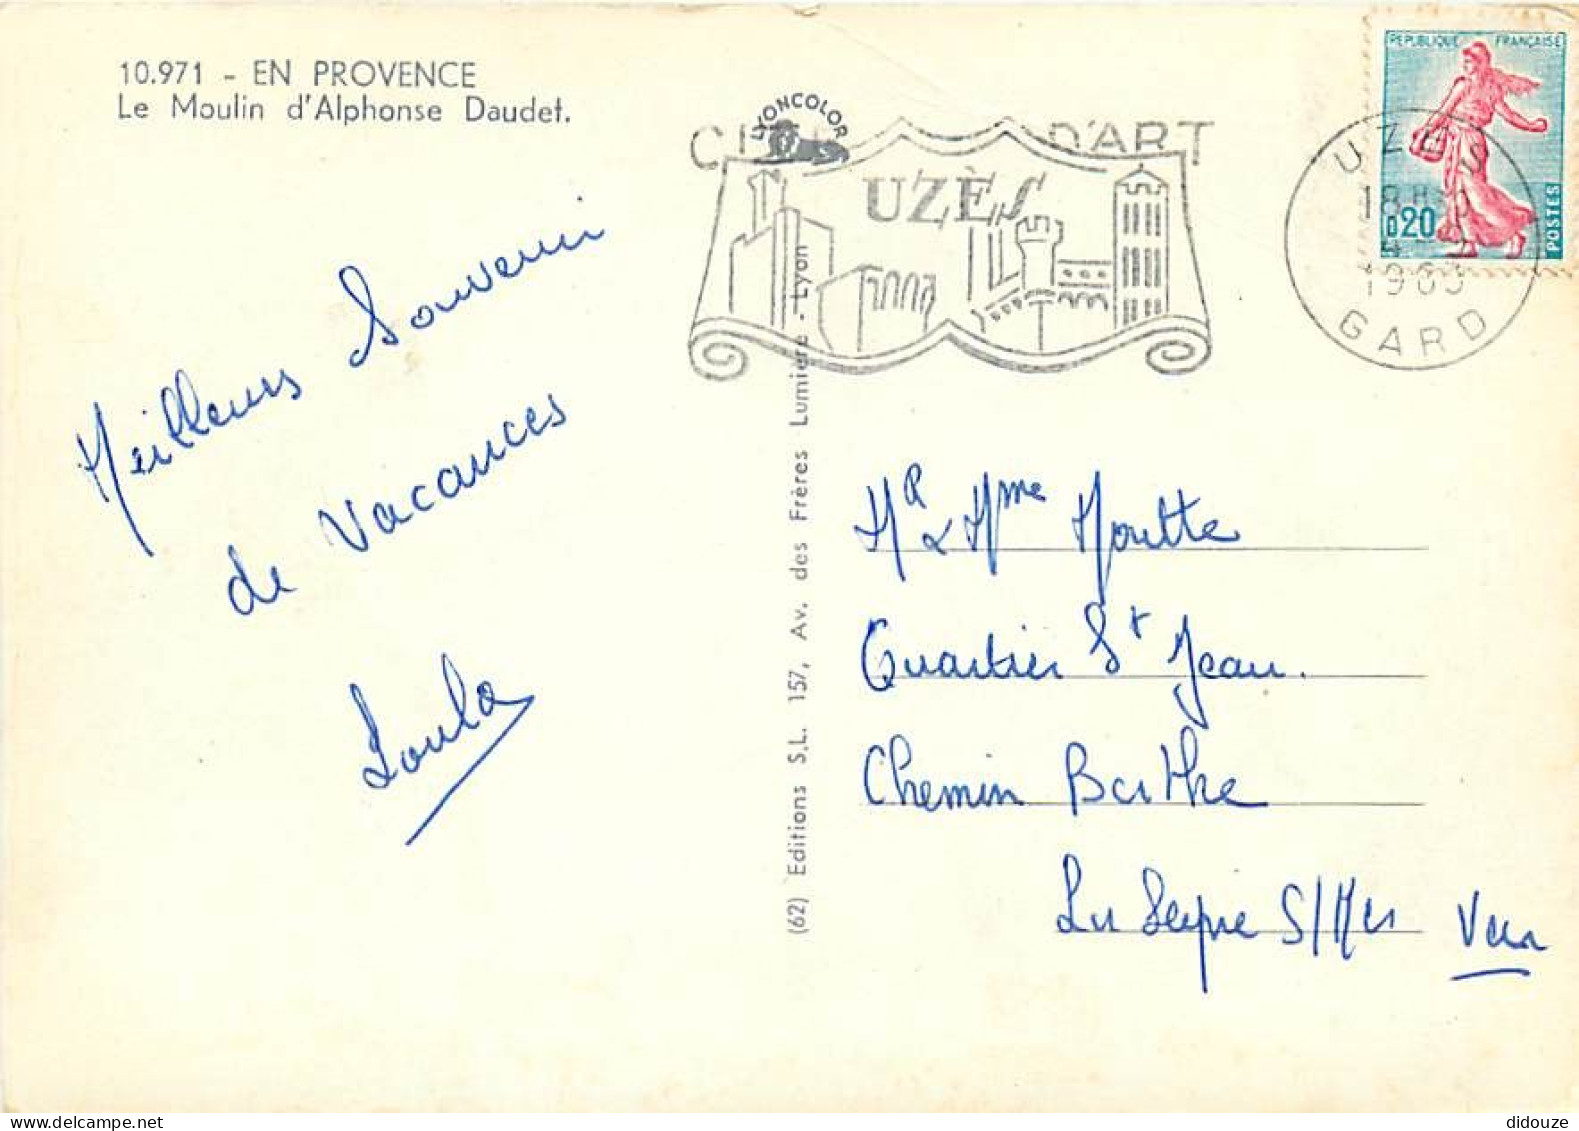 10.971 - EN PROVENCE
Le Moulin d'Alphonse Daudet.
LYONCOLOR
D'ART
UZÈS
REPUBLIQUE FRANÇAISE
0,20
POSTES
UZES
18H
1963
GARD
Meilleurs Souvenir
de Vacances
Loula
(62) Editions S.L. 157, Av. des Frères Lumière - Lyon
Mr & Mme Moutte
Quartier St Jean.
Chemin Barthe
La Seyne S/Mer Var
didouze